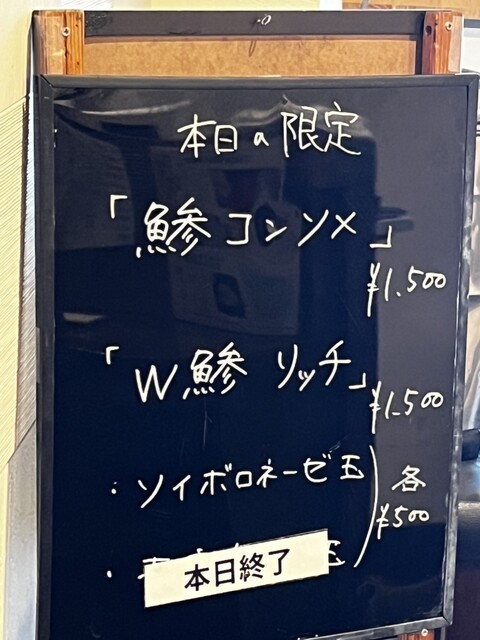 本日の限定
「鯵コンソメ」
¥1.500
「W鯵 リッチ」
¥1.500
・ソイボロネーゼ玉
各
¥500
・ 玉
本日終了